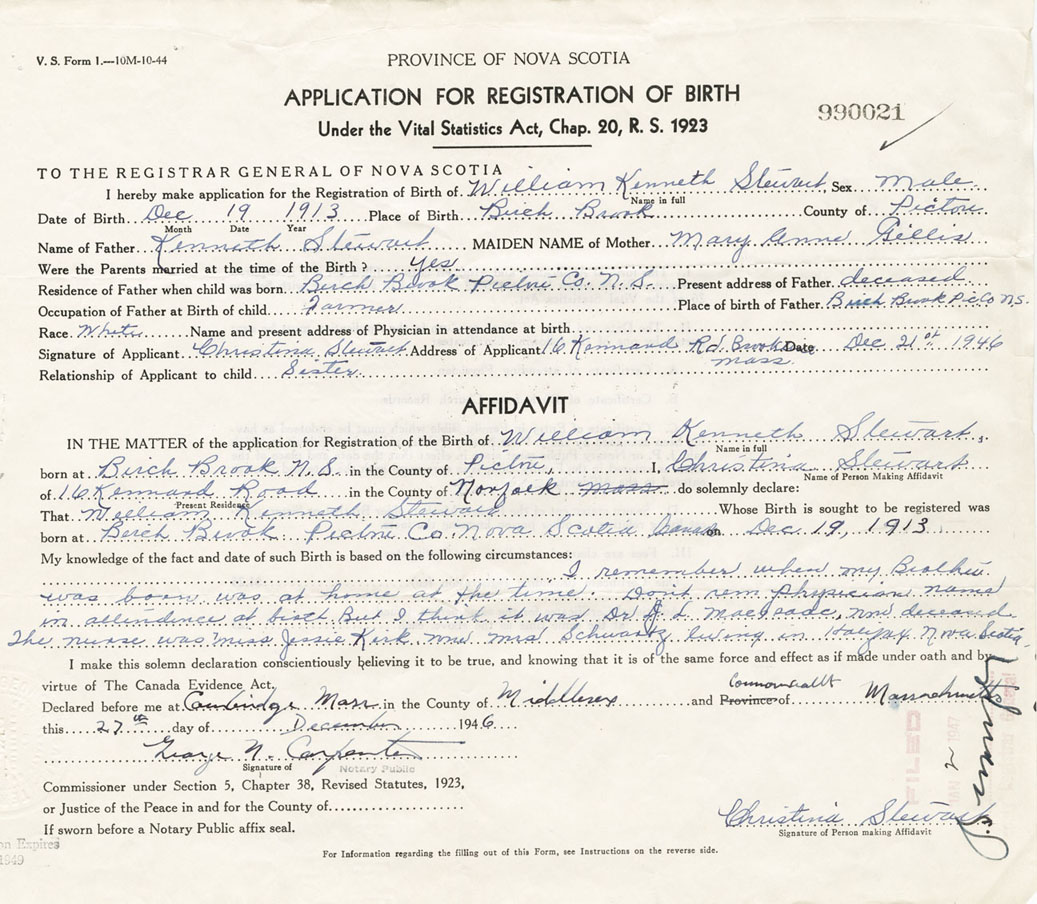 V. S. Form 1.—10M-10-44
PROVINCE OF NOVA SCOTIA
APPLICATION FOR REGISTRATION OF BIRTH
Under the Vital Statistics Act, Chap. 20, R. S. 1923
990021
TO THE REGISTRAR GENERAL OF NOVA SCOTIA
I hereby make application for the Registration of Birth of William Kenneth Stewart Sex Male
Name in full
Date of Birth Dec 19 1913 Place of Birth Birch Brook County of Pictou
Month Date Year
Name of Father Kenneth Stewart MAIDEN NAME of Mother Mary Anne Gillis
Were the Parents married at the time of the Birth? yes
Residence of Father when child was born Birch Brook Pictou Co. N.S. Present address of Father deceased
Occupation of Father at Birth of child Farmer Place of birth of Father Birch Brook Pic Co N.S.
Race White Name and present address of Physician in attendance at birth
Signature of Applicant Christina Stewart Address of Applicant 16 Kennard Rd. Brookline Date Dec 21st 1946
Mass
Relationship of Applicant to child Sister
AFFIDAVIT
IN THE MATTER of the application for Registration of the Birth of William Kenneth Stewart
Name in full
born at Birch Brook N.S. in the County of Pictou, I, Christina Stewart
Name of Person Making Affidavit
of 16 Kennard Road in the County of Norfolk Mass do solemnly declare:
Present Residence
That William Kenneth Stewart Whose Birth is sought to be registered was
born at Birch Brook Pictou Co. Nova Scotia Canada on Dec 19, 1913
My knowledge of the fact and date of such Birth is based on the following circumstances:
I remember when my Brother
was born was at home at the time. Don't rem Physician name
in attendence at birth But I think it was Dr J L now deceased
The nurse was Miss Jessie Kirk now Mrs Schwartz living in Halifax Nova Scotia.
I make this solemn declaration conscientiously believing it to be true, and knowing that it is of the same force and effect as if made under oath and by
virtue of The Canada Evidence Act.
Commonwealth
Declared before me at Cambridge Mass. in the County of Middlesex and Province of Massachusetts
this 27th day of December 1946
George N. Carpenter
Signature of Notary Public
Commissioner under Section 5, Chapter 38, Revised Statutes, 1923,
or Justice of the Peace in and for the County of
If sworn before a Notary Public affix seal.
Christina Stewart
Signature of Person making Affidavit
For Information regarding the filling out of this Form, see Instructions on the reverse side.
FILED
JAN 2 1947
on Expires
1949